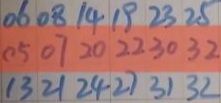 06 08 14 19 23 25
05 07 20 22 30 32
13 21 24 27 31 32